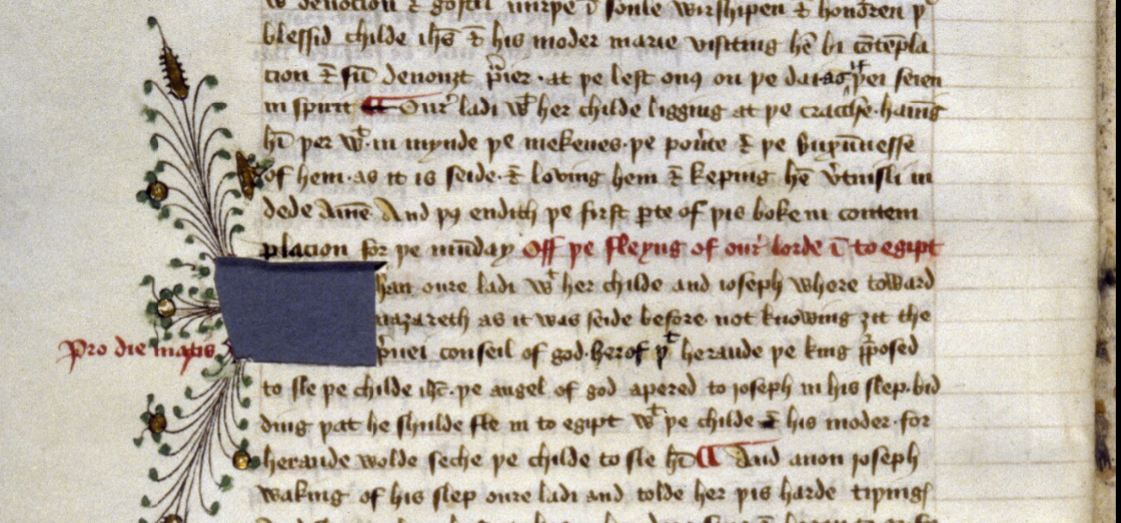 w^t deuocion & gostli ... soule wirshipen & honoren þ^e
blessid childe ihs & his moder marie visiting hē bi cōtēpla
cion & sū deuout p̄ier · at þe lest onys on þe dai · as ^if þei seien
in spirit ¶ Our' ladi w^t her childe ligging at þe cracche · hauīg
hī þer w^t · in mynde þe mekenes · þe pou'te & þe buxūnesse
of hem · as it is seide · & loving hem & keping hē v'tuisli in
dede Amē And þus endith þe first p̄te of þis boke in contem
placion for þe mūday Off þe fleyng of our' lorde ī to egipt
han oure ladi w^t her childe and ioseph where toward
nazareth as it was seide before · not knowing ȝit the
p̄uei conseil of god · herof þ^t heraude þe king p̄posed
Pro die martis
to sle þe childe ihc · þe angel of god apered to ioseph in his slep · bid
ding þat he shulde fle in to egipt w^t þe childe & his moder · for
heraude wolde seche þe childe to sle hī ¶ And anon ioseph
waking of his slep oure ladi and tolde her þis harde tiþingƒ